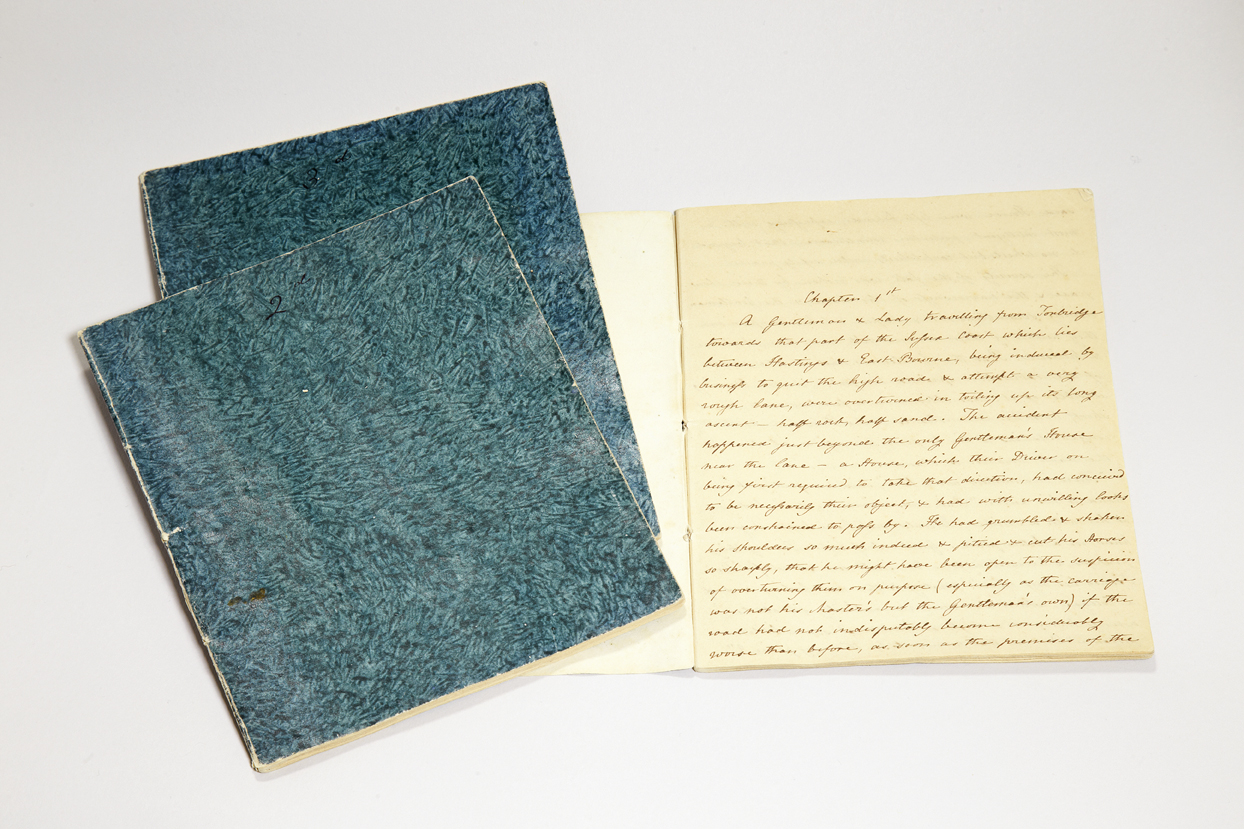 3d
2d
Chapter 1st
A Gentleman & Lady travelling from Tonbridge
towards that part of the Sussex Coast which lies
between Hastings & East Bourne, being induced by
business to quit the high road & attempt a very
rough Lane, were overturned in toiling up its long
ascent – half rock, half sand. The accident
happened just beyond the only Gentleman's House
near the Lane – a House, which their Driver on
being first required to take that direction, had conceived
to be necessarily their object, & had with unwilling Looks
been constrained to pass by. He had grumbled & shaken
his shoulders so much indeed & pitied & cut his Horses
so sharply, that he might have been open to the suspicion
of overturning them on purpose (especially as the carriage
was not his Master's but the Gentleman's own) if the
road had not indisputably become considerably
worse than before, as soon as the premises of the